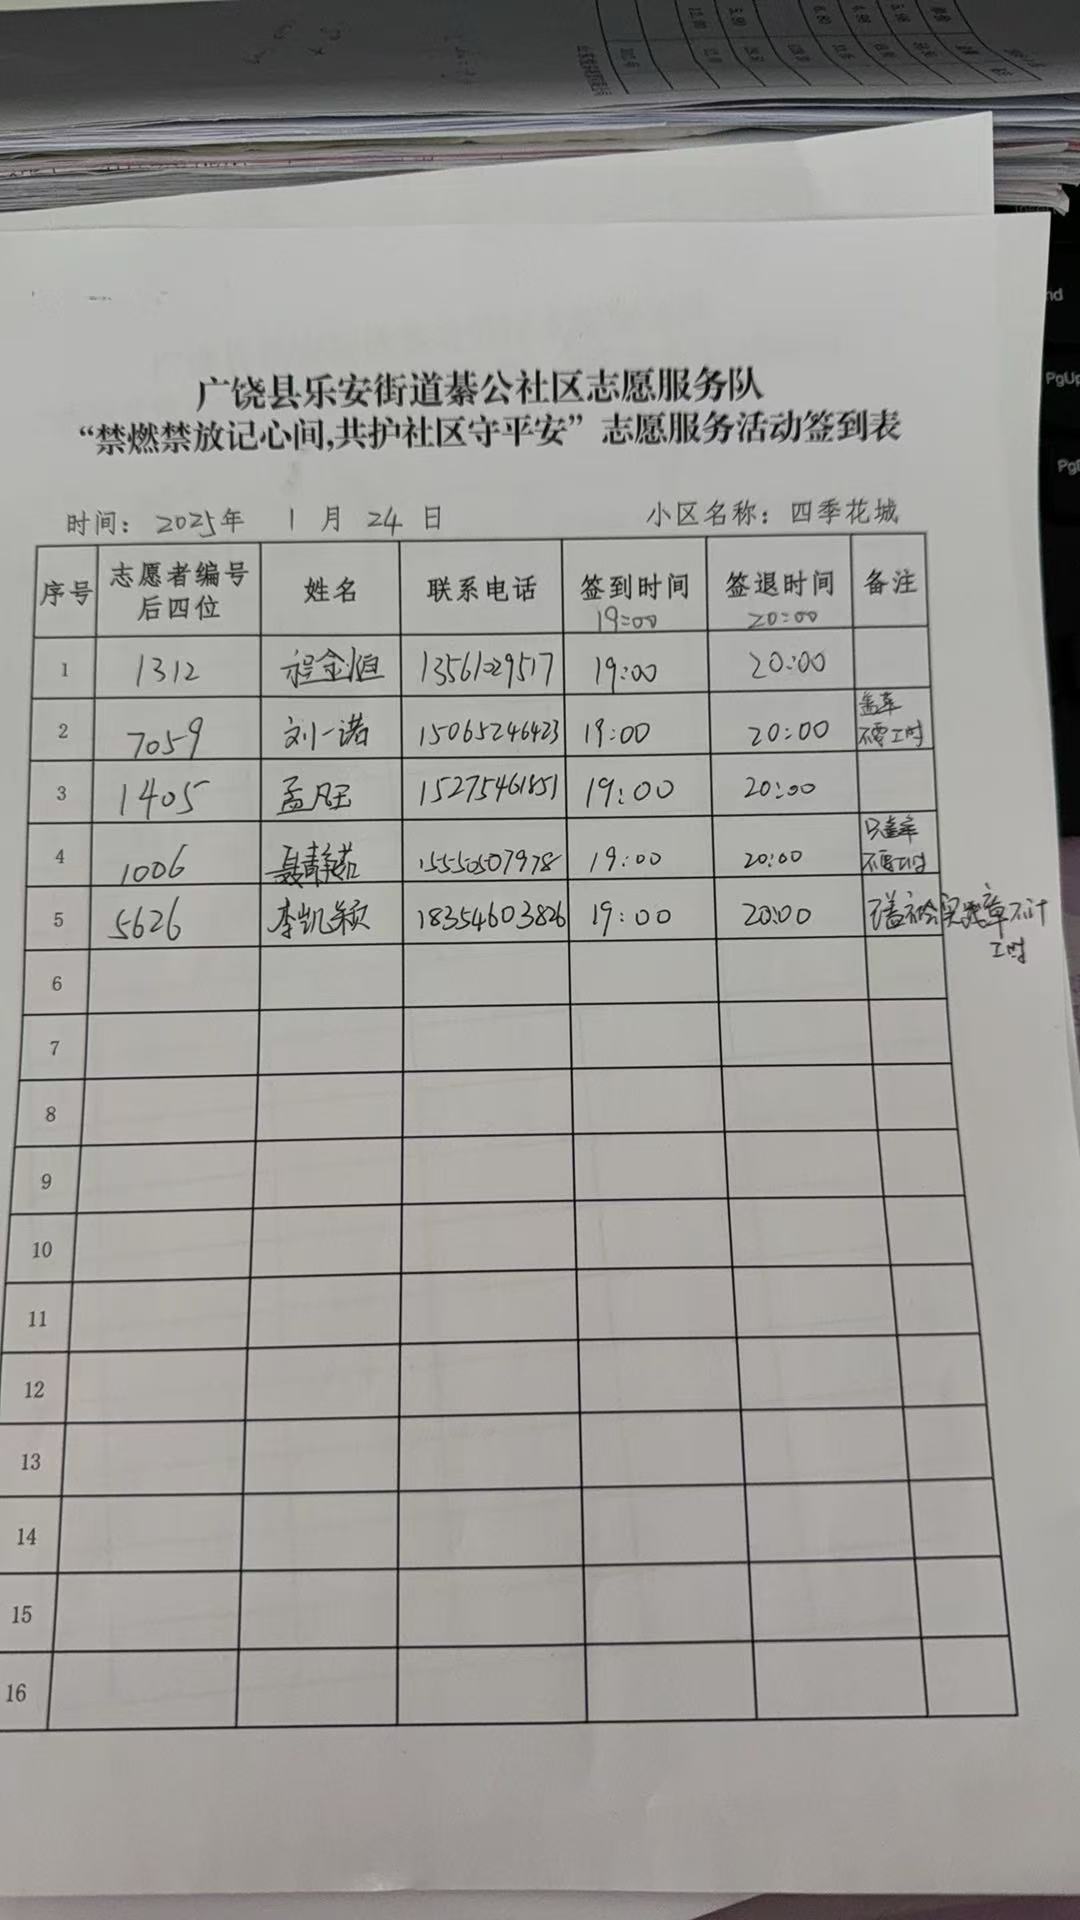 广饶县乐安街道綦公社区志愿服务队
“禁燃禁放记心间,共护社区守平安”志愿服务活动签到表
时间: 2025年 1月 24日 小区名称: 四季花城
序号 志愿者编号后四位 姓名 联系电话 签到时间 19:00 签退时间 20:00 备注
1 1312 程金恒 13561029517 19:00 20:00
2 7059 刘一诺 15065246423 19:00 20:00 盖章 不要工时
3 1405 孟凡玉 15275461851 19:00 20:00
4 1006 聂静茹 15550507978 19:00 20:00 只盖章 不要工时
5 5626 李凯颖 18354603826 19:00 20:00 盖社会实践章不计工时
6
7
8
9
10
11
12
13
14
15
16
PgUp